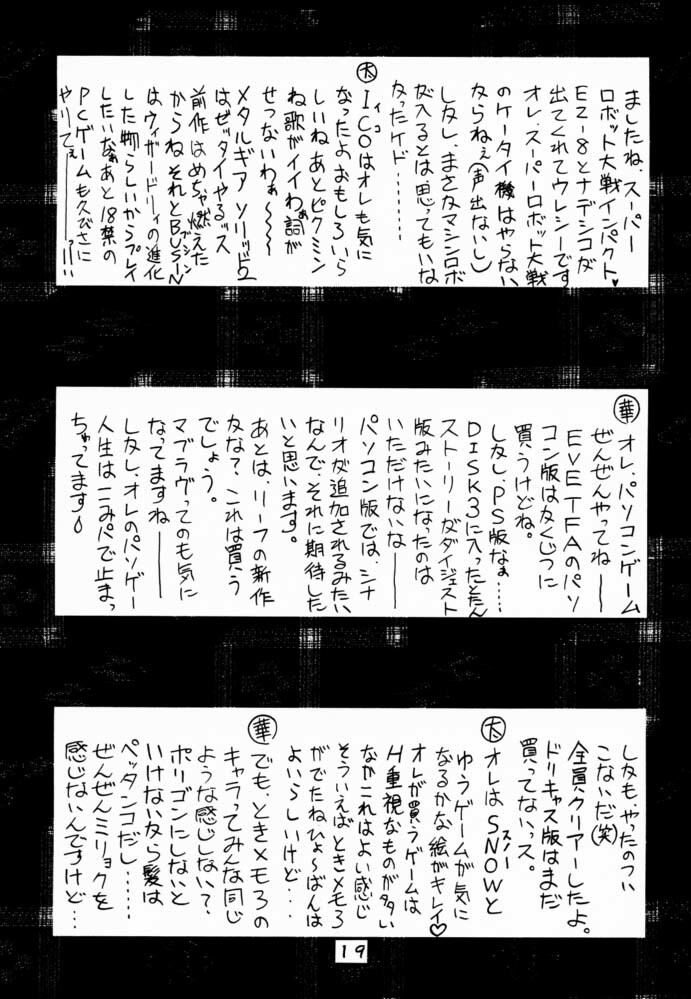 ましたね、スーパー
ロボット大戦インパクト♥
EZ-8とナデシコが
出てくれてウレシーです
オレ、スーパーロボット大戦
のケータイ機はやらない
ならねぇ(声出ないし)
しかし、まさかマシンロボ
が入るとは思ってもいな
かったケド………
(太)ICOはオレも気に
イコ
なったよおもしろいら
しいねあとピクミン
ね歌がイイわぁ詞が
せつないわぁ〜〜〜
メタルギア ソリッド2
はゼッタイやるっス
前作はめちゃ燃えた
からねそれとBUSIN
ブシン
はウィザードリィの進化
した物らしいからプレイ
したいなぁあと18禁の
PCゲームも久びさに
やりてぇ――っ!!!
(華)オレ、パソコンゲーム
ぜんぜんやってね――
EVE TFAのパソ
コン版はかくじつに
買うけどね。
しかし、PS版なぁ……
DISK3に入ったとたん
ストーリーがダイジェスト
版みたいになったのは
いただけないな――
パソコン版では、シナ
リオが追加されるみたい
なんで、それに期待した
いと思います。
あとは、リーフの新作
かな?、これは買う
でしょう。
マブラヴってのも気に
なってますね――
しかし、オレのパソゲー
人生はこみパで止まっ
ちゃってます
しかも、やったのつい
こないだ(笑)
全員クリアーしたよ。
ドリキャス版はまだ
買ってないっス。
(太)オレはSNOWと
スノー
ゆうゲームが気に
なるかな絵がキレイ♡
オレが買うゲームは
H重視なものが多い
なかこれはよい感じ
そういえばときメモ3
がでたねひょーばんは
よいらしいけど…
(華)でも、ときメモ3の
キャラってみんな同じ
ような感じしない?
ポリゴンにしないと
いけないなら髪は
ペッタンコだし……
ぜんぜんミリョクを
感じないんですけど…
19